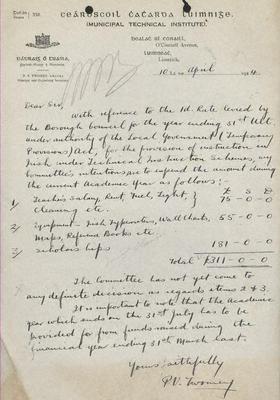 Telephone 358.
CEÁRDSCOIL CATHARDA LUIMNIGHE.
(MUNICIPAL TECHNICAL INSTITUTE).
BEALACH UÍ CONAILL,
O'Connell Avenue,
LUIMNEACH,
Limerick,
10 April
Dear Sir,
With reference to the 1d. Rate levied by
the Borough Council for the year ending 31st ult.
under authority of the Local Government (Temporary
Provisions) Act, for the provision of instruction in
Irish under Technical Instruction Schemes, my
Committee's intentions are to expend the amount during
the current Academic Year as follows:-
£ S D
1/ Teacher's Salary, Rent, Fuel, Light, } 75-0-0
Cleaning etc.
2/ Equipment - Irish Typewriters, Wall Charts, 55-0-0
Maps, Reference Books etc.
3/ Scholarships 181-0-0
Total £311-0-0
The Committee has not yet come to
any definite decision as regards items 2 & 3.
It is important to note that the Academic
year which ends on the 31st July has to be
provided for from funds raised during the
financial year ending 31st March last.
Yours faithfully
P.V. Twomey